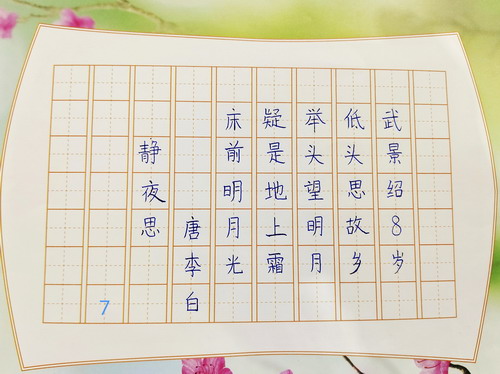 静夜思
唐李白
床前明月光
疑是地上霜
举头望明月
低头思故乡
武景绍8岁
7